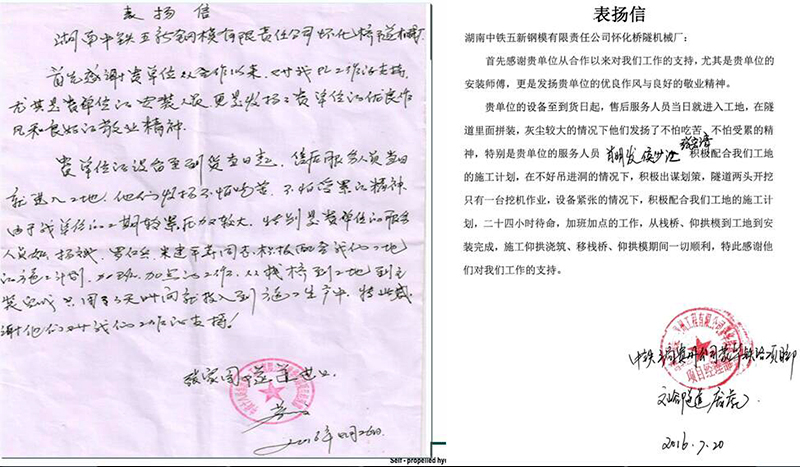 表扬信
湖南中铁五新钢模有限责任公司怀化桥隧机械厂
首先感谢贵单位从合作以来，对我们工作的支持，
尤其是贵单位的安装人员，更是发扬了贵单位的优良作
风和良好的敬业精神。
贵单位的设备至到货当日起，售后服务人员当日
就进入工地，他们发扬不怕吃苦、不怕受累的精神。
由于我单位的工期较紧压力较大，特别是贵单位的服务
人员
的施工计划，加班加点的工作，从栈桥到工地到安
装完成只用了3天时间就投入到施工生产中，特此感
谢他们对我们工作的支持！
2016年
表扬信
湖南中铁五新钢模有限责任公司怀化桥隧机械厂：
首先感谢贵单位从合作以来对我们工作的支持，尤其是贵单位的
安装师傅，更是发扬贵单位的优良作风与良好的敬业精神。
贵单位的设备至到货日起，售后服务人员当日就进入工地，在隧
道里面拼装，灰尘较大的情况下他们发扬了不怕吃苦、不怕受累的精
神，特别是贵单位的服务人员 积极配合我们工地
的施工计划，在不好吊进洞的情况下，积极出谋划策，隧道两头开挖
只有一台挖机作业，设备紧张的情况下，积极配合我们工地的施工计
划，二十四小时待命，加班加点的工作，从栈桥、仰拱模到工地到安
装完成，施工仰拱浇筑、移栈桥、仰拱模期间一切顺利，特此感谢他
们对我们工作的支持。
项目经理部
2016.7.20
Self - propelled hy